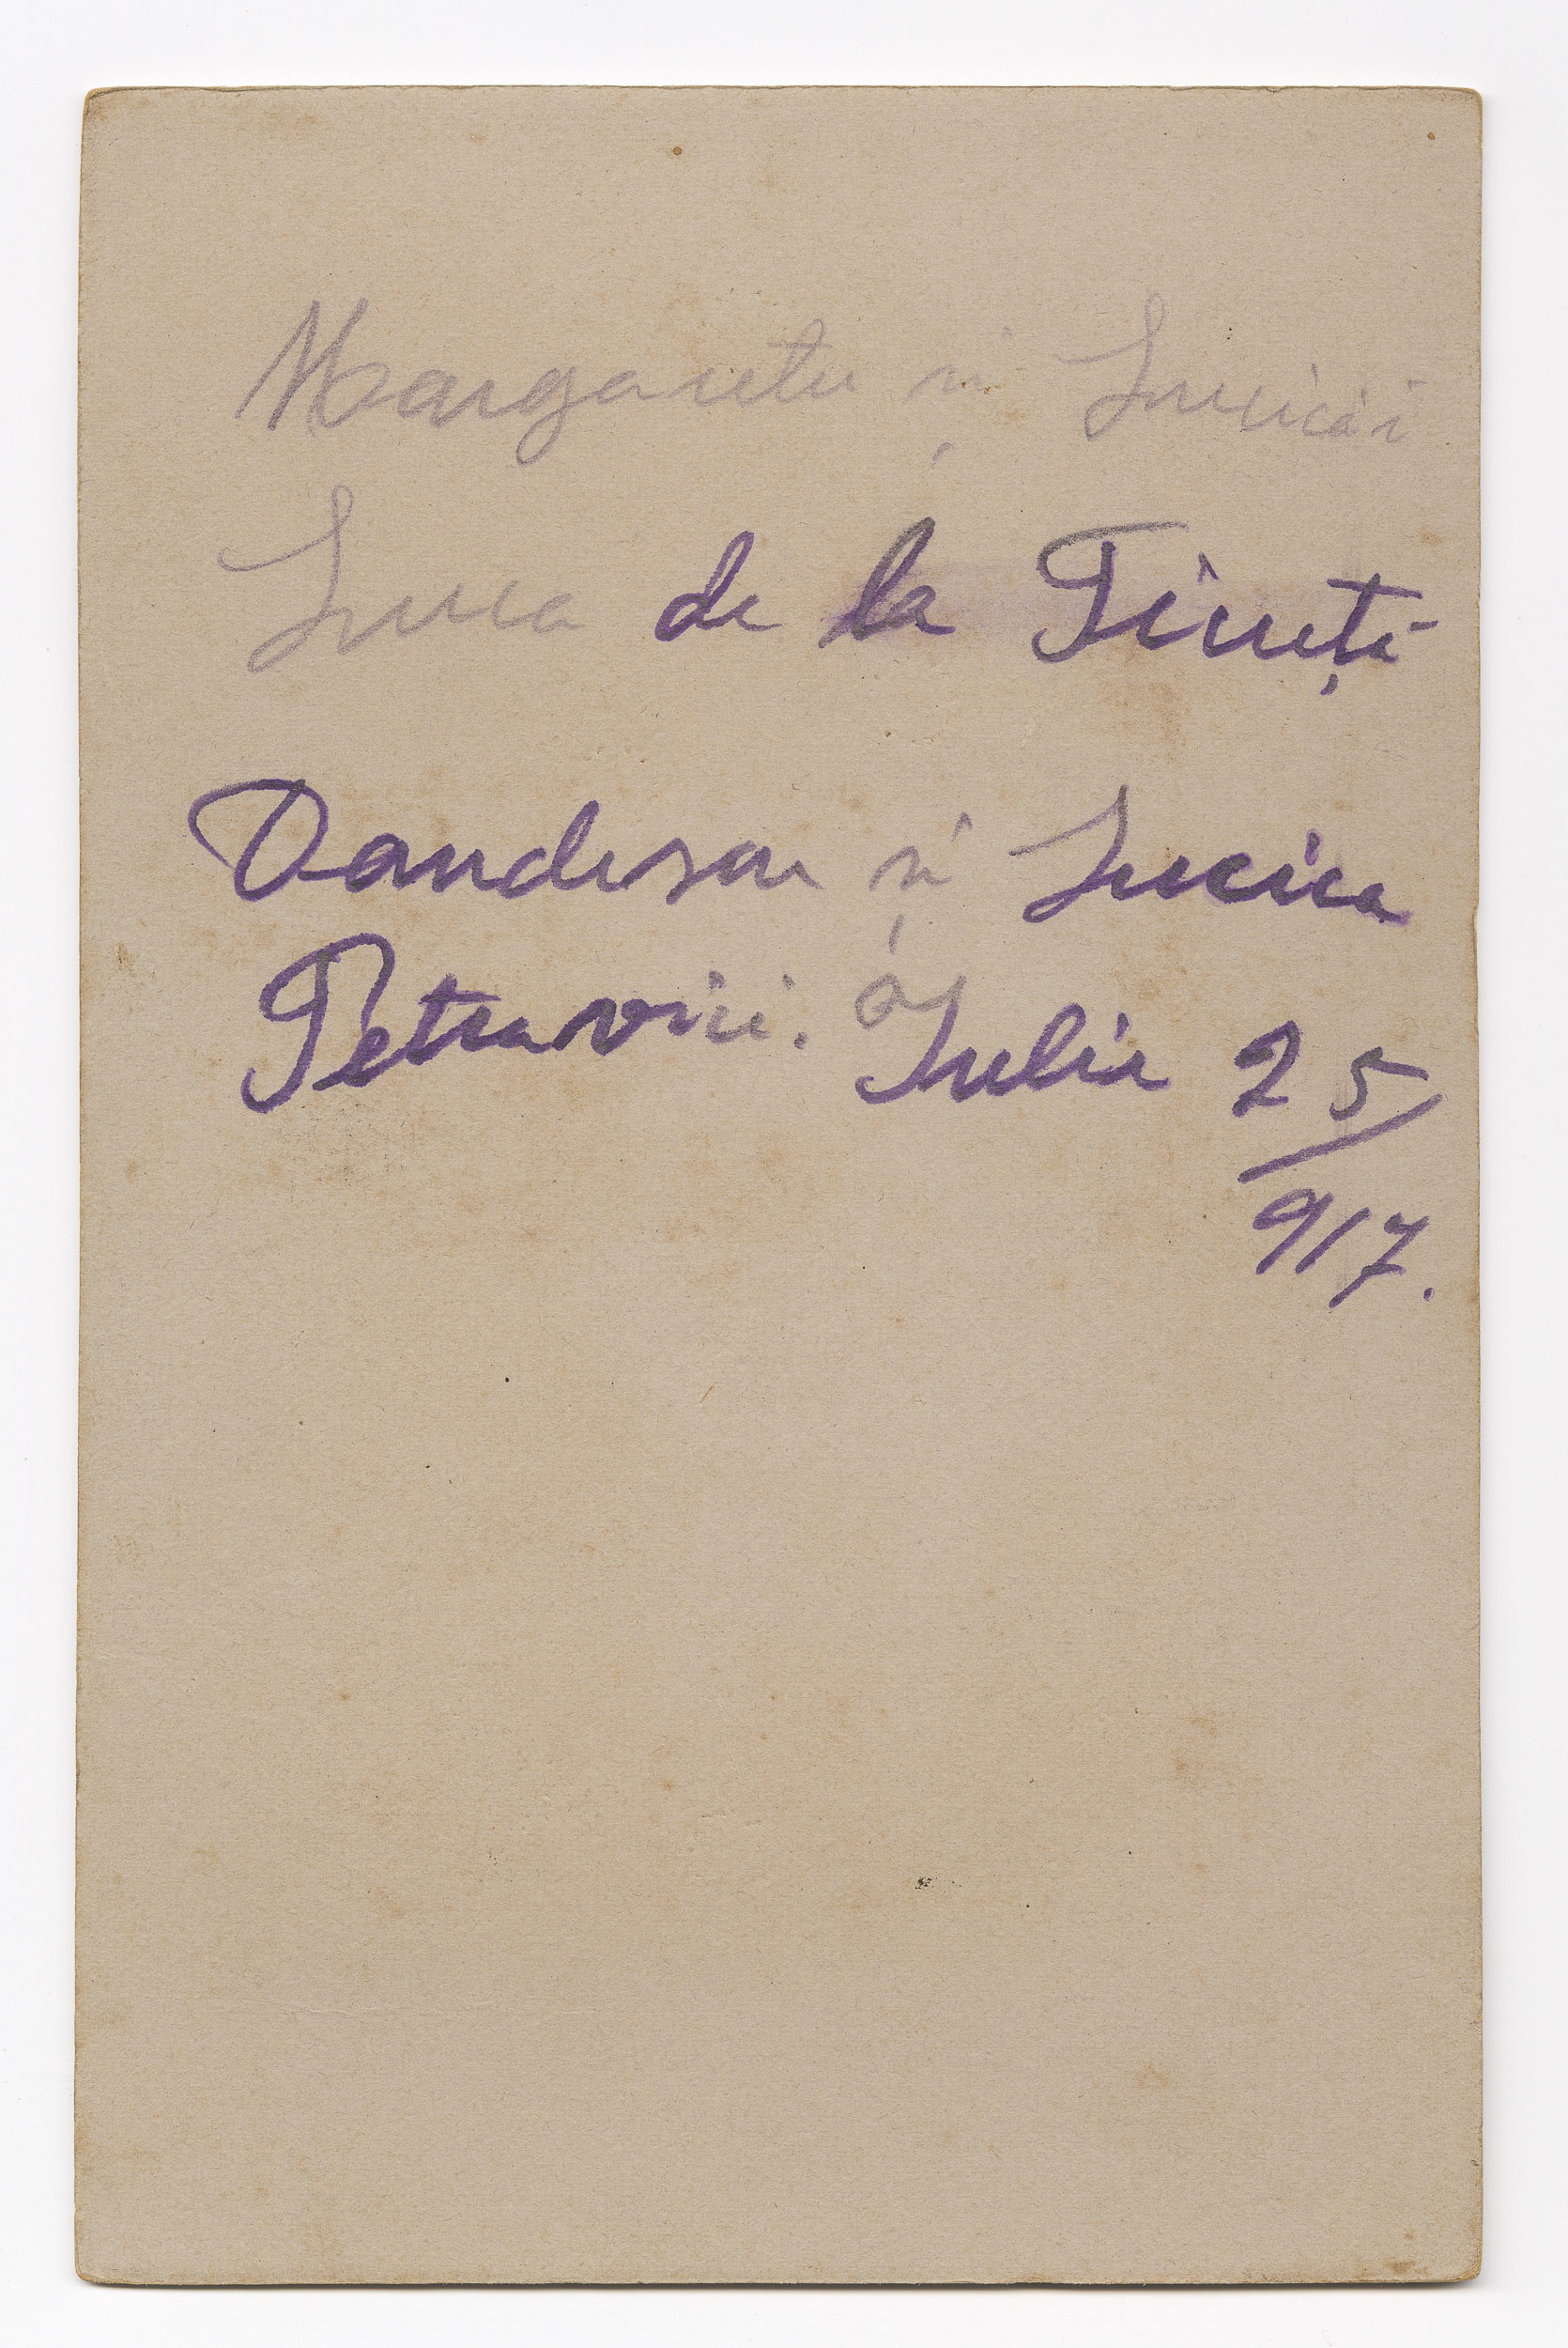 Margaretei și Luciciăi
Luca de la Tinuți
Dandesou și Lucica
Petrovici. Iulie 25
917.